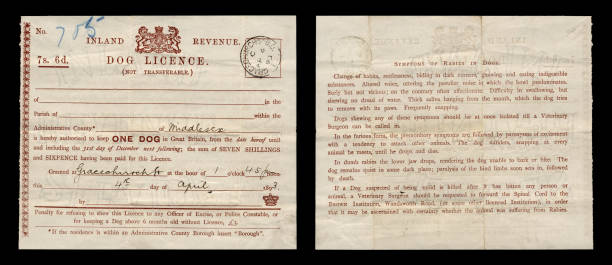 No. 705
INLAND REVENUE.
7s. 6d. DOG LICENCE.
(NOT TRANSFERABLE.)
of in the
Parish of within the
Administrative County * of Middlesex
is hereby authorized to keep ONE DOG in Great Britain, from the date hereof until
and including the 31st day of December next following; the sum of SEVEN SHILLINGS
and SIXPENCE having been paid for this Licence.
Granted at Gracechurch St at the hour of 1 o'clock 45
this 4th day of April 189
by
Penalty for refusing to show this Licence to any Officer of Excise, or Police Constable, or
for keeping a Dog above 6 months old without Licence, £5
* If the residence is within an Administrative County Borough insert "Borough".
SYMPTOMS OF RABIES IN DOGS.
Change of habits, restlessness, hiding in dark corners, gnawing and eating indigestible
substances. Altered voice, uttering the peculiar noise in which the howl predominates.
Surly but not vicious; on the contrary often affectionate. Difficulty in swallowing, but
shewing no dread of water. Thick saliva hanging from the mouth, which the dog tries
to remove with its paws. Frequently snapping.
Dogs shewing any of these symptoms should be at once isolated till a Veterinary
Surgeon can be called in.
In the furious form, the premonitory symptoms are followed by paroxysms of excitement
with a tendency to attack other animals. The dog wanders, snapping at every
animal he meets, until he drops and dies.
In dumb rabies the lower jaw drops, rendering the dog unable to bark or bite. The
dog remains quiet in some dark place; paralysis of the hind limbs soon sets in, followed
by death.
If a Dog suspected of being mad is killed after it has bitten any person or
animal, a Veterinary Surgeon should be requested to forward the Spinal Cord to the
Brown Institution, Wandsworth Road, (or some other licensed Institution), in order
that it may be ascertained with certainty whether the animal was suffering from Rabies.